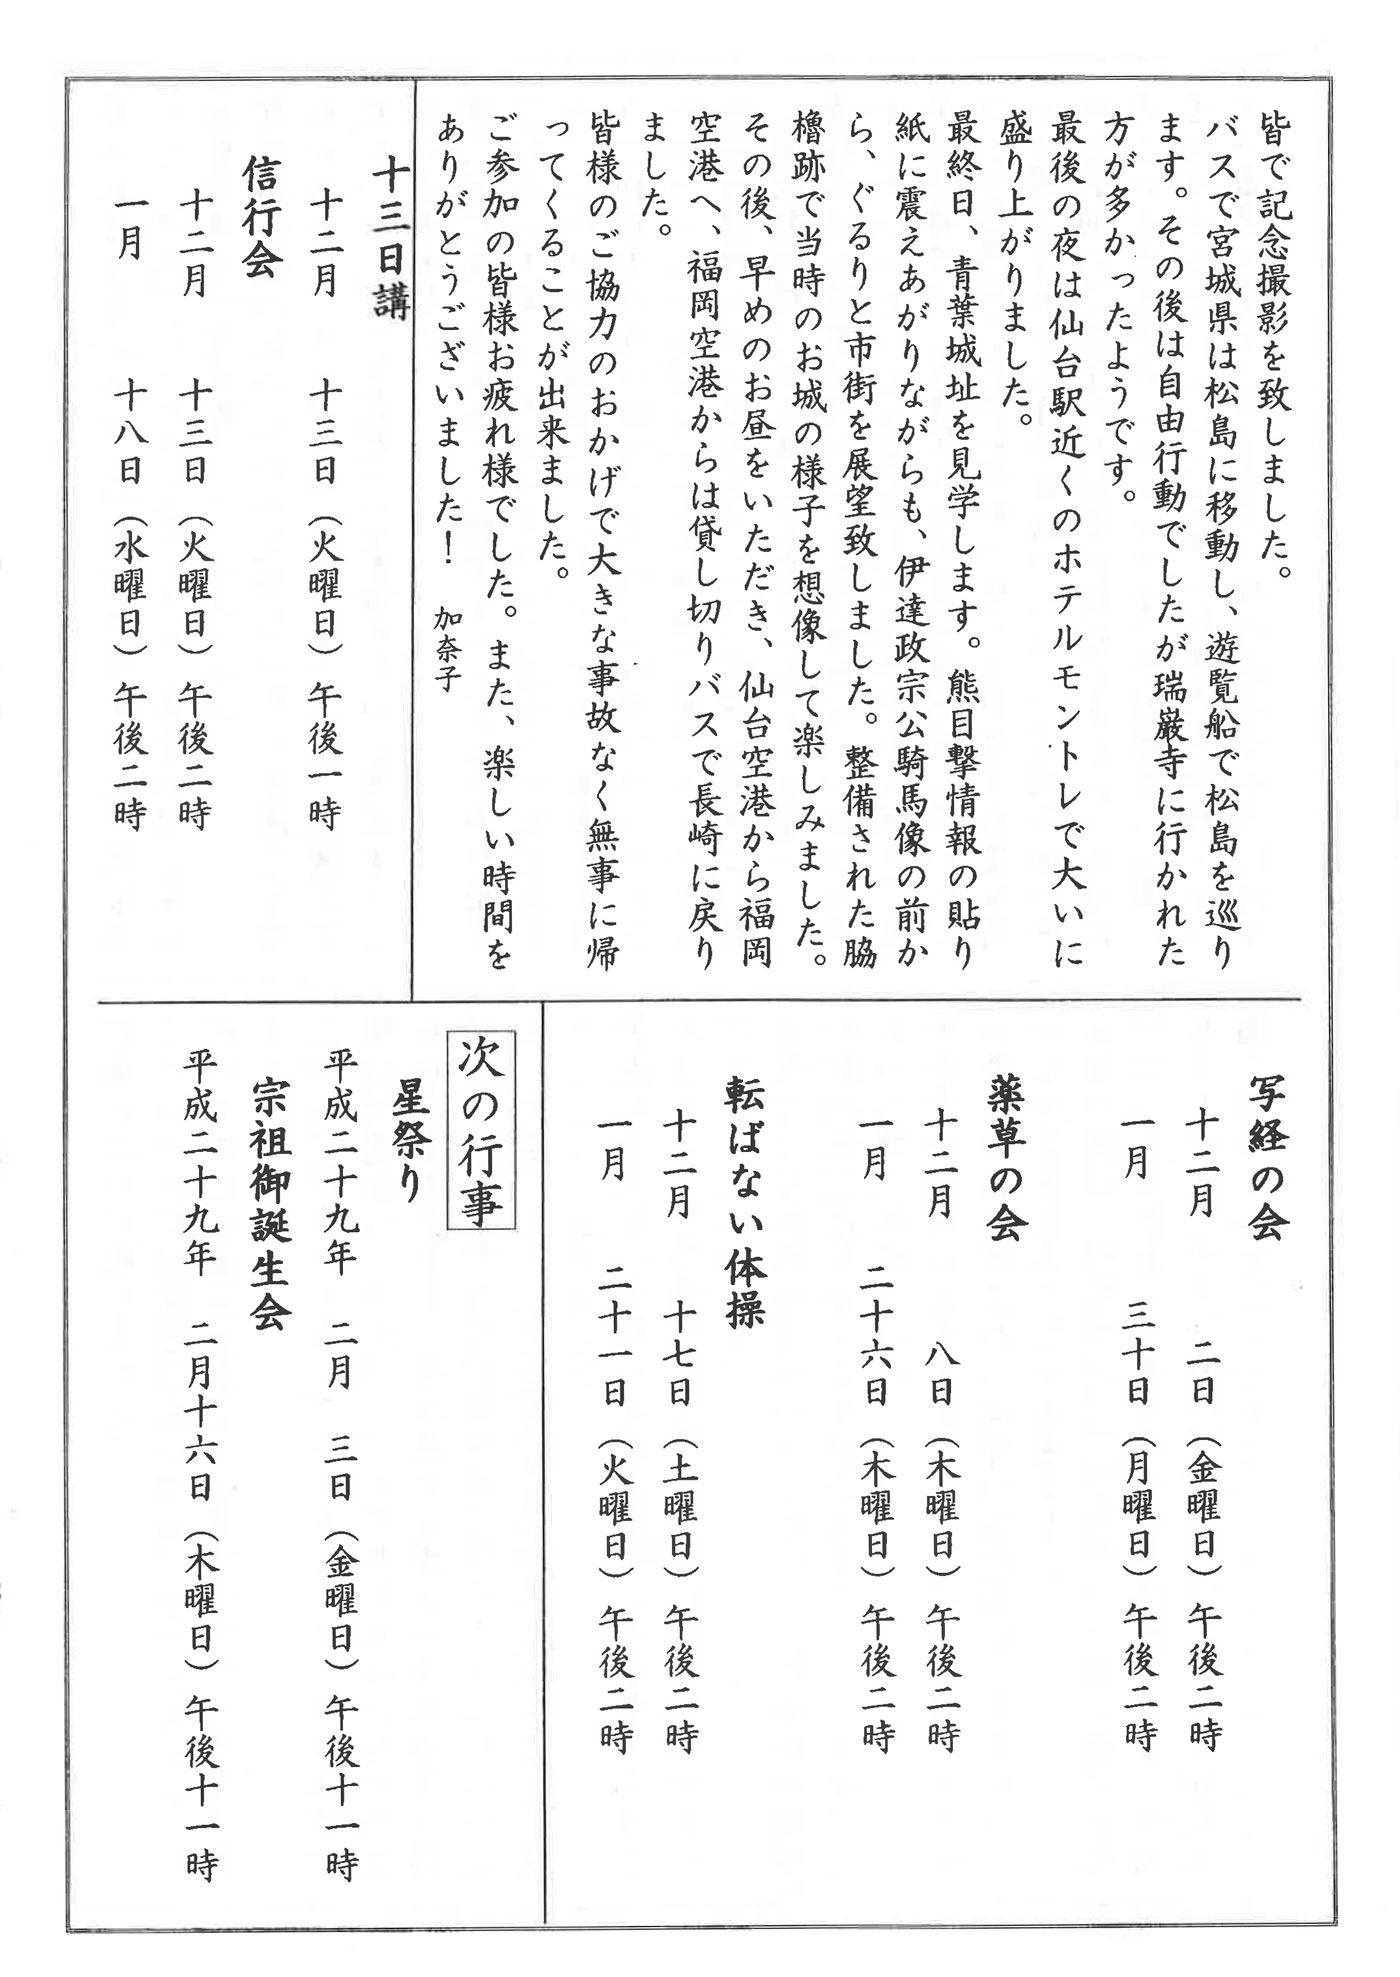 皆で記念撮影を致しました。
バスで宮城県は松島に移動し、遊覧船で松島を巡り
ます。その後は自由行動でしたが瑞巌寺に行かれた
方が多かったようです。
最後の夜は仙台駅近くのホテルモントレで大いに
盛り上がりました。
最終日、青葉城址を見学します。熊目撃情報の貼り
紙に震えあがりながらも、伊達政宗公騎馬像の前か
ら、ぐるりと市街を展望致しました。整備された脇
櫓跡で当時のお城の様子を想像して楽しみました。
その後、早めのお昼をいただき、仙台空港から福岡
空港へ、福岡空港からは貸し切りバスで長崎に戻り
ました。
皆様のご協力のおかげで大きな事故なく無事に帰
ってくることが出来ました。
ご参加の皆様お疲れ様でした。また、楽しい時間を
ありがとうございました！　加奈子
十三日講
十二月　十三日（火曜日）午後一時
信行会
十二月　十三日（火曜日）午後二時
一月　十八日（水曜日）午後二時
写経の会
十二月　二日（金曜日）午後二時
一月　三十日（月曜日）午後二時
薬草の会
十二月　八日（木曜日）午後二時
一月　二十六日（木曜日）午後二時
転ばない体操
十二月　十七日（土曜日）午後二時
一月　二十一日（火曜日）午後二時
次の行事
星祭り
平成二十九年　二月　三日（金曜日）午後十一時
宗祖御誕生会
平成二十九年　二月十六日（木曜日）午後十一時